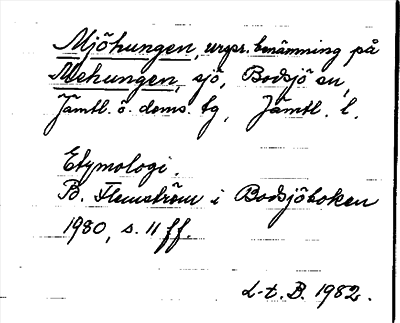 Mjöhungen, urspr. benämning på
Mehungen, sjö, Bodsjö sn,
Jämtl. ö. doms. tg, Jämtl. l.
Etymologi.
B. Flemström i Bodsjöboken
1980, s. 11 ff.
L-t. B. 1982.